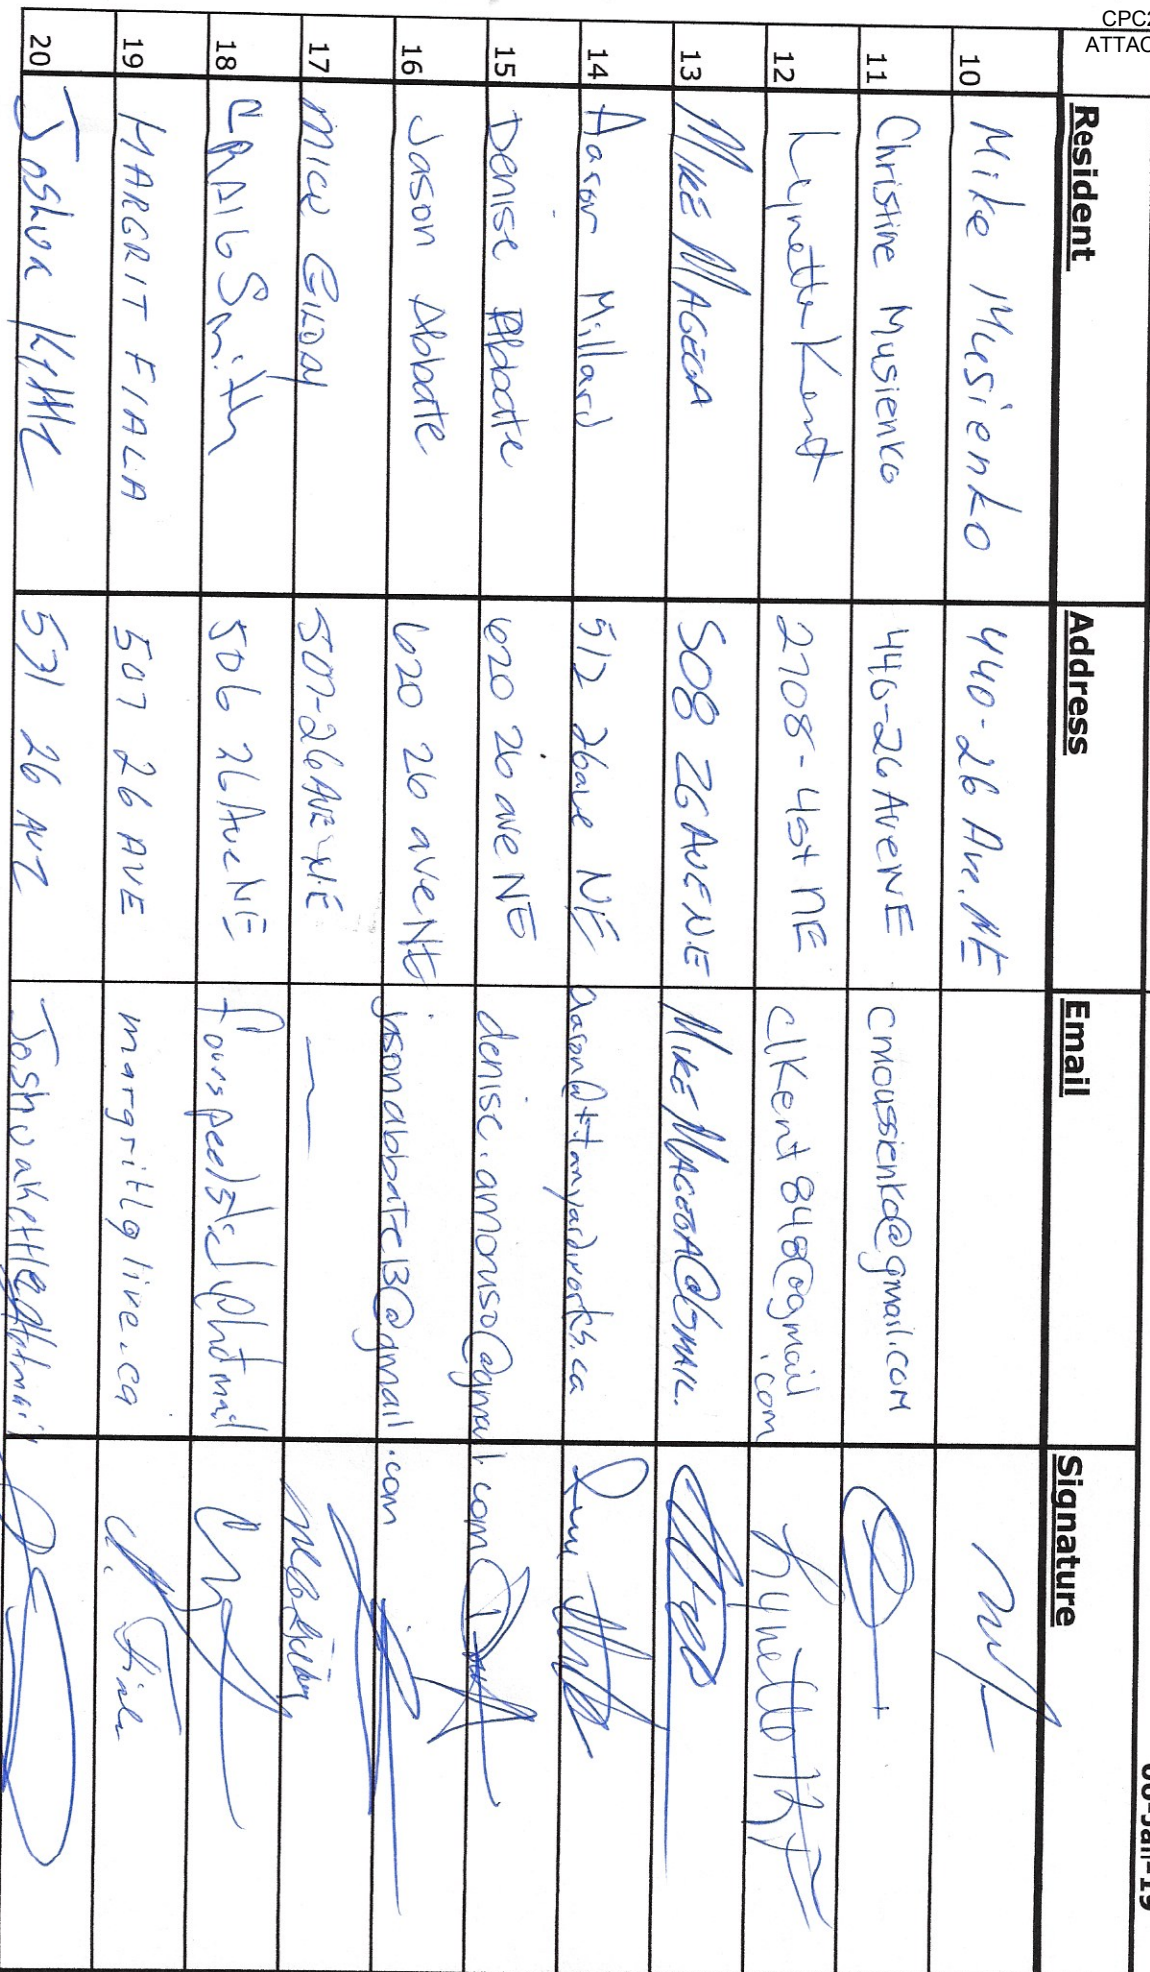 CPC2
ATTAC
06-Jan-19
Resident Address Email Signature
10 Mike Musienko 440-26 Ave. NE
11 Christine Musienko 440-26 Ave NE cmoussienko@gmail.com
12 Lynette Kent 2708-4st NE clkent848@gmail.com
13 MIKE MAGEGA 508 26 AVE N.E MIKEMAGEGA@GMAIL.
14 Aaron Millard 512 26ave NE aaron@titanyardworks.ca
15 Denise Abbate 620 26 ave NE denise.amoruso@gmail.com
16 Jason Abbate 620 26 ave NE jasonabbate13@gmail.com
17 507-26 AVE N.E
18 CRAIG Smith 506 26 Ave NE
19 MARGRIT FIALA 507 26 AVE
20 Joshua Kittle 531 26 AVE